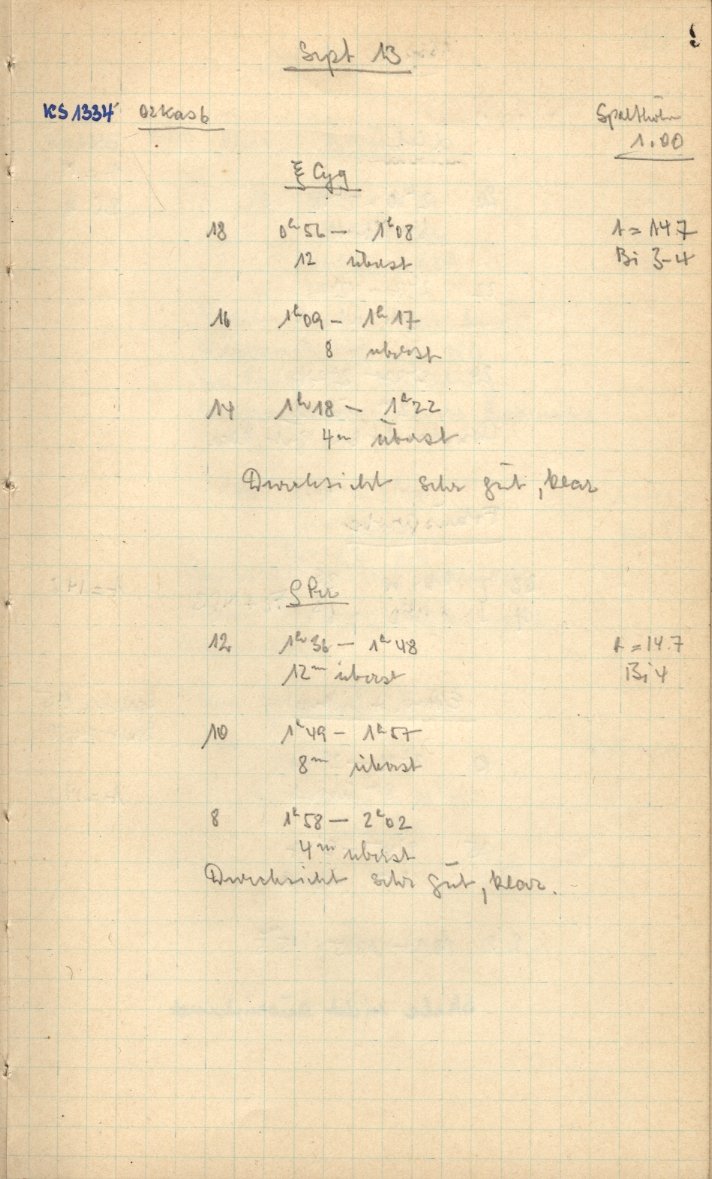 Sept 13
KS 1334 Spalthöhe
1.00
ξ Cyg
18 0h56 — 1h08 t = 14.7
12 überst Bi 3-4
16 1h09 — 1h17
8 überst
14 1h18 — 1h22
4m überst
Durchsicht sehr gut, klar
Per
12 1h36 — 1h48 t = 14.7
12m überst Bi 4
10 1h49 — 1h57
8m überst
8 1h58 — 2h02
4m überst
Durchsicht sehr gut, klar.